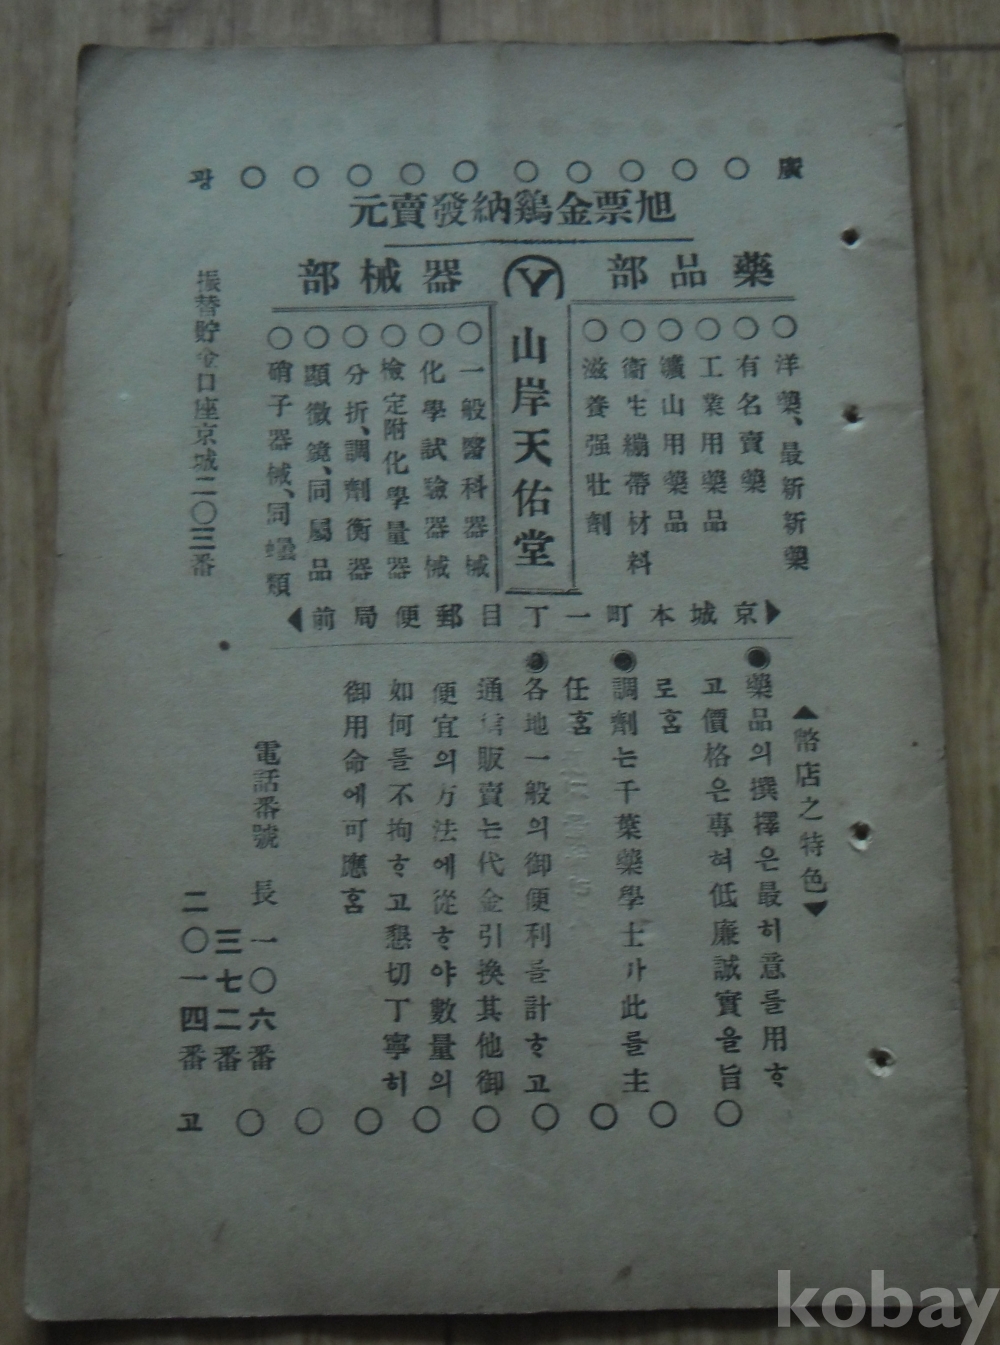 廣○○○○○○○○○○광
旭票金鷄納發賣元
藥品部
○洋藥、最新新藥
○有名賣藥
○工業用藥品
○鑛山用藥品
○衛生繃帶材料
○滋養强壯劑
Y
山岸天佑堂
器械部
○一般醫科器械
○化學試驗器械
○檢定附化學量器
○分折、調劑衡器
○顯微鏡、同屬品
○硝子器械、同 類
京城本町一丁目郵便局前
振替貯金口座京城二〇三番
▲幣店之特色▼
◉藥品의撰擇은最히意를用ᄒᆞ
고價格은專혀低廉誠實을旨
로홈
◉調劑는千葉藥學士가此를主
任홈
◉各地一般의御便利를計ᄒᆞ고
通信販賣는代金引換其他御
便宜의方法에從ᄒᆞ야數量의
如何를不拘ᄒᆞ고懇切丁寧히
御用命에可應홈
電話番號 長一〇六番
三七二番
二〇一四番
○○○○○○○○○고
kobay